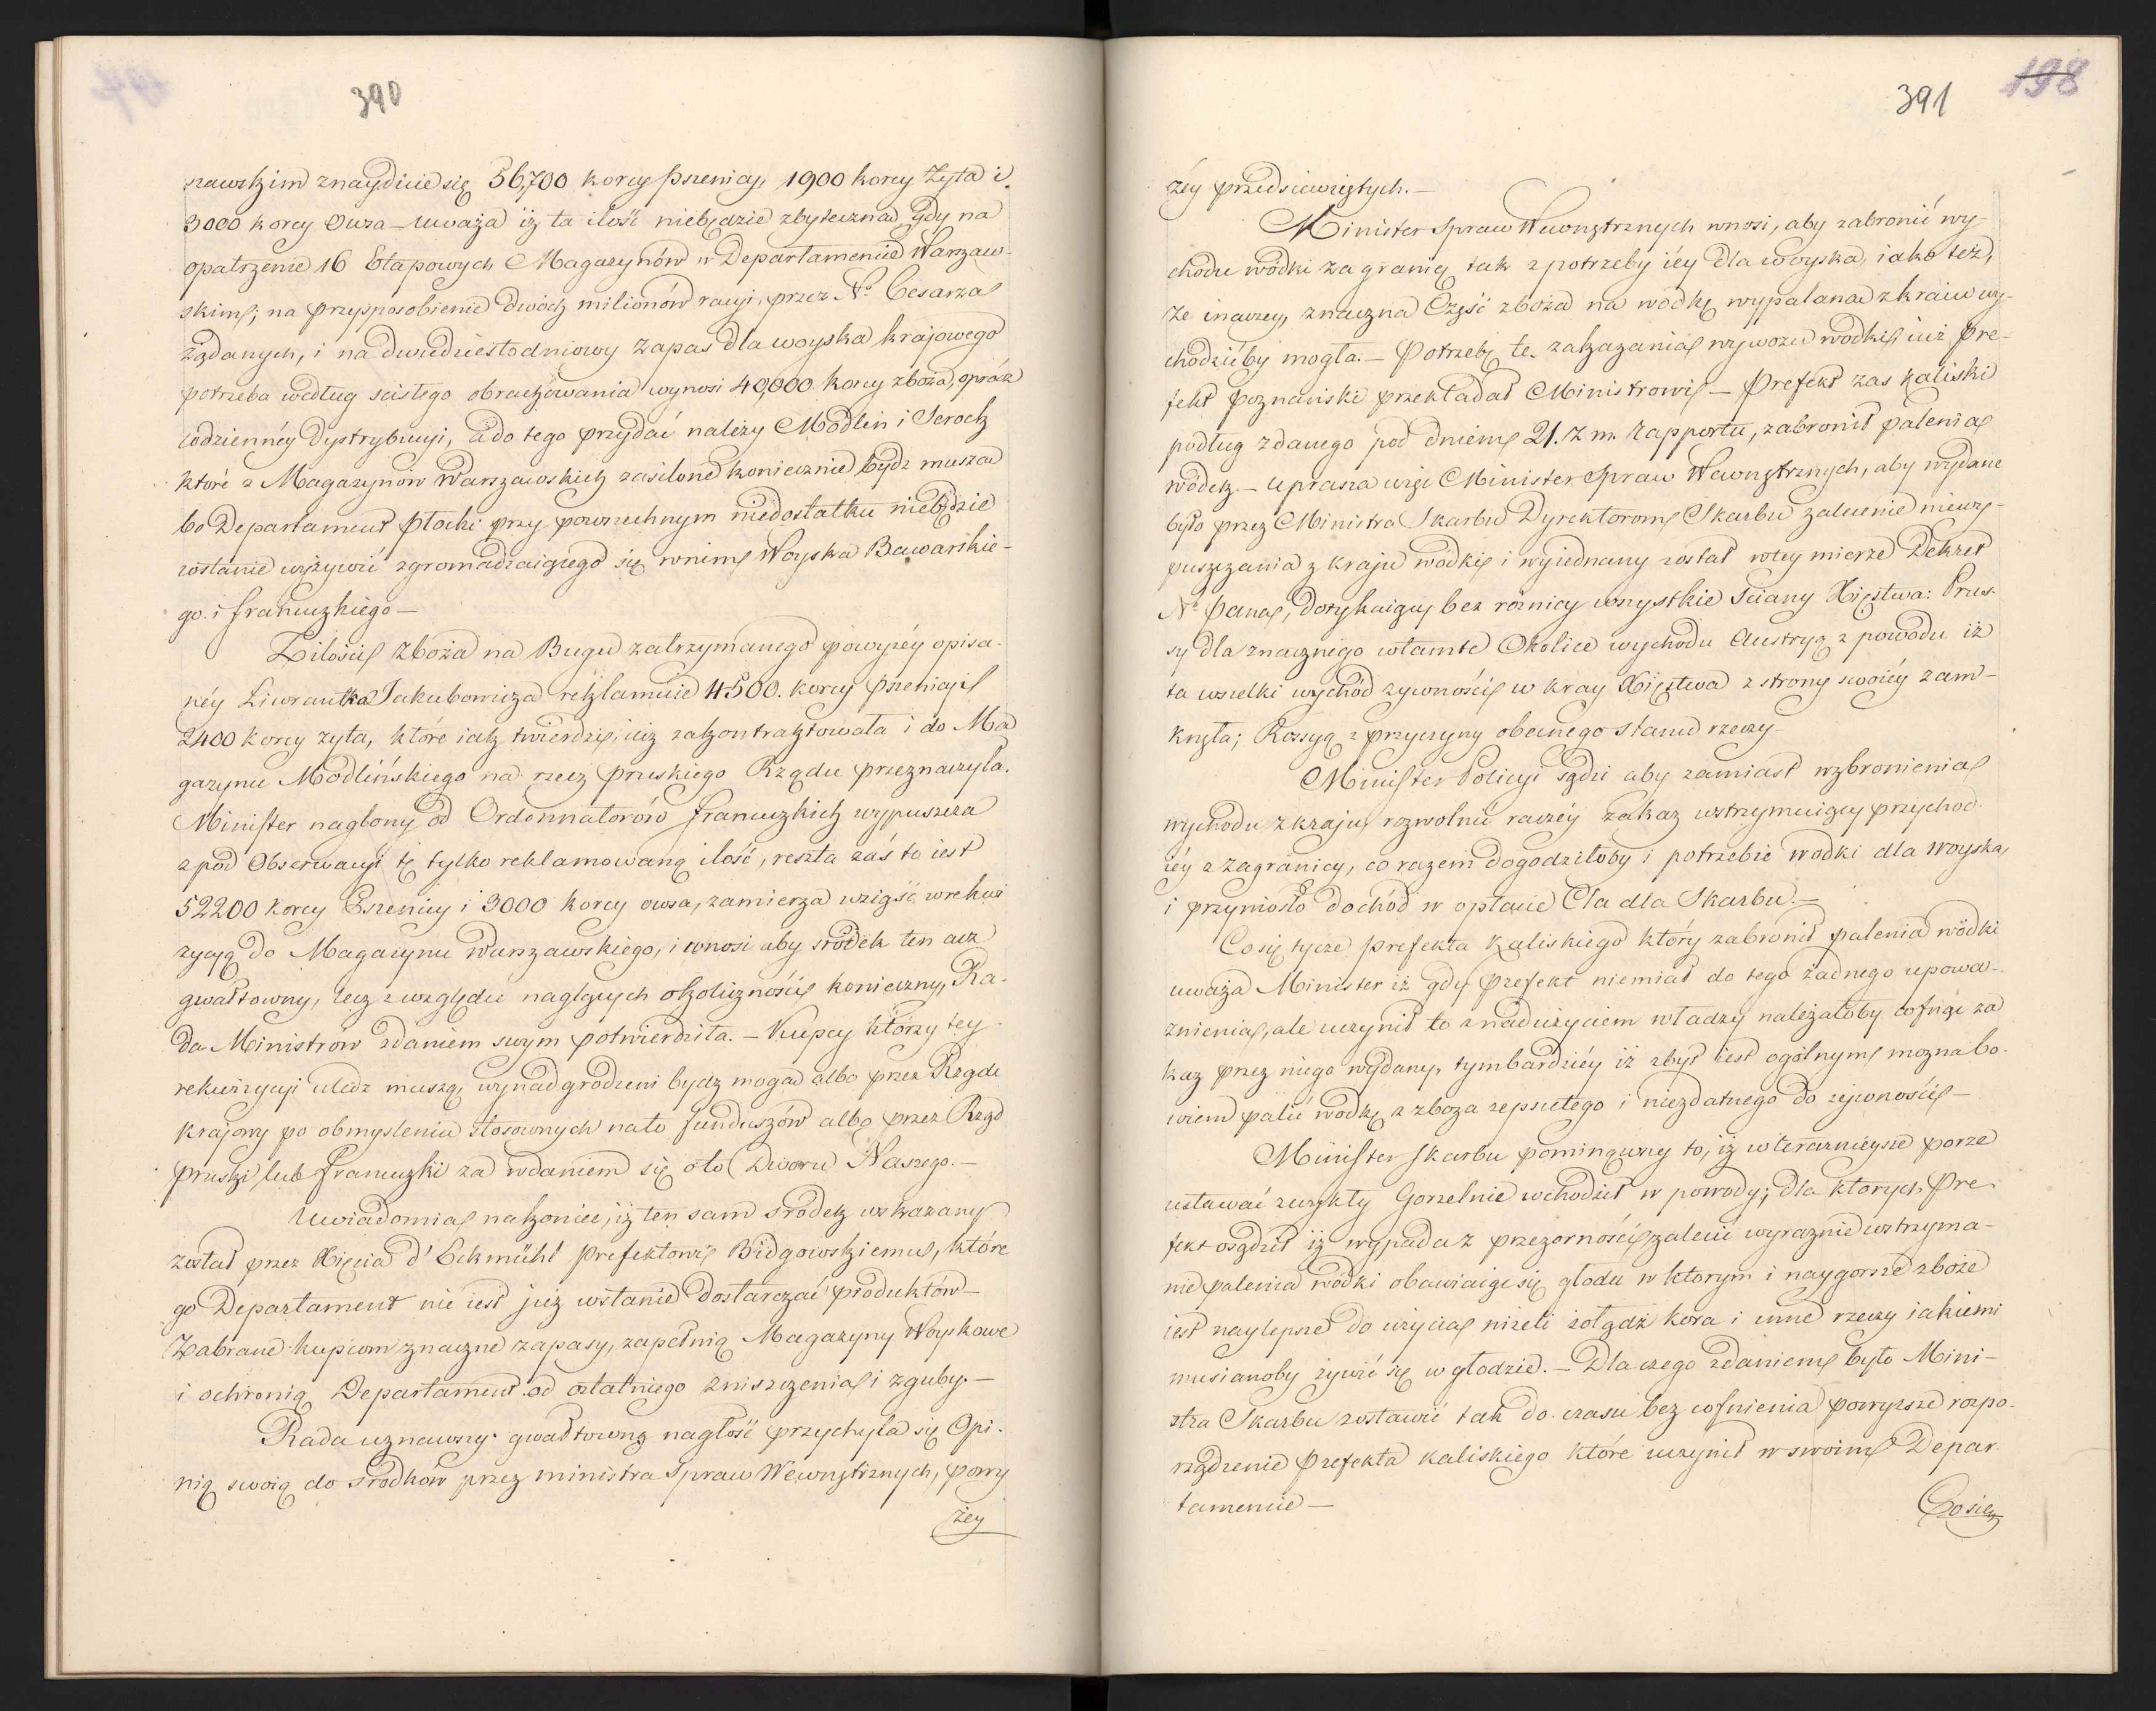 390
szawskim znayduie się 56,700 korcy pszenicy, 1900 korcy żyta i
3000 korcy owsa – uważa iż ta ilość niebędzie zbyteczna, gdy na
opatrzenie 16 Etapowych Magazynów w Departamencie Warszaw-
skim; na przysposobienie dwóch milionów racyi, przez N. Cesarza
żądanych, i na dwudziestodniowy zapas dla woyska krajowego
potrzeba według scisłego obrachowania wynosi 40,000 korcy zboża, oprócz
codziennéy dystrybucyi, a do tego przydać należy Modlin i Serock
które z Magazynów Warszawskich zasilone koniecznie bydz muszą
bo Departament Płocki przy powszechnym niedostatku niebędzie
wstanie wyżywić zgromadzaiącego się wnim Woyska Bawarskie-
go i francuzkiego —
Z ilości zboża na Bugu zatrzymanego powyżéy opisa-
néy Liwrantka Jakubowicza reklamuie 4500 korcy pszenicy i
2400 korcy żyta, które iak twierdzi, iuż zakontraktowała i do Ma
gazynu Modlińskiego na rzecz pruskiego Rządu przeznaczyła.
Minister naglony od Ordonnatorów francuzkich wypuszcza
z pod Obserwacyi tę tylko reklamowaną ilość, reszta zaś to iest
52200 korcy Pszenicy i 3000 korcy owsa, zamierza wziąść w rekwi
zycyą do Magazynu Warszawskiego, i wnosi aby srodek ten acz
gwałtowny, lecz z względu naglących okoliczności konieczny, Ra-
da Ministrów zdaniem swym potwierdziła. – Kupcy którzy tey
rekwizycyi uledz muszą, wynadgrodzeni bydz mogą albo przez Rząd
krajowy po obmysleniu stosownych nato funduszów albo przez Rząd
pruski, lub francuzki za wdaniem się oto Dworu Naszego. —
Uwiadomia nakoniec, iż ten sam srodek wskazany
został przez Xięcia d'Eckmühl Prefektowi Bidgowskiemu, które
go Departament nie iest już wstanie dostarczać produktów —
Zabrane kupcom znaczne zapasy, zapełnią Magazyny Woyskowe
i ochronią Departament od ostatniego zniszczenia i zguby. —
Rada uznawszy gwałtowną nagłość przychyla się Opi-
nią swoią do srodków przez ministra Spraw Wewnętrznych, powy
żey
391
198
żéy przedsiewziętych. —
Minister Spraw Wewnętrznych wnosi, aby zabronić wy-
chodu wódki zagranicę, tak z potrzeby iéy dla woyska, iako też,
że inaczey, znaczna Część zboża na wódkę wypalana z kraiu wy-
chodzićby mogła. – Potrzebę tę zakazania wywozu wodki iuż Pre-
fekt Poznański przekładał Ministrowi – Prefekt zas Kaliski
podług zdanego pod dniem 21. z. m. rapportu, zabronił palenia
wódek. – Uprasza więc Minister Spraw Wewnętrznych, aby wydane
było przez Ministra Skarbu Dyrektorom Skarbu zalecenie niewy-
puszczania z kraju wódki i wyjednany został wtey mierze Dekret
N. Pana, dotykaiący bez różnicy wszystkie ściany Xięstwa: Prus-
sy dla znacznego wtamte Okolice wychodu Austryą z powodu iż
ta wszelki wychód żywności w kray Xięstwa z strony swoiéy zam-
knęła; Rossyą z przyczyny obecnego stanu rzeczy —
Minister Policyi sądzi aby zamiast wzbronienia
wychodu z kraju rozwolnić raczéy zakaz wstrzymuiący przychod
iéy z zagranicy, co razem dogodziłoby i potrzebie wodki dla woyska,
i przyniosło dochód w opłacie Cła dla Skarbu. —
Co się tycze prefekta Kaliskiego który zabronił palenia wódki
uważa Minister iż gdy Prefekt niemiał do tego żadnego upowa-
żnienia, ale uczynił to z nadużyciem władzy należałoby cofnąć za
kaz przez niego wydany, tymbardziéy iż zbyt iest ogólnym, można bo-
wiem palić wodkę z zboza zepsutego i niezdatnego do żywności —
Minister Skarbu pominąwszy to, iż w terazniéysze porze
ustawać zwykły Gorzelnie wchodził w powody; dla ktorych Pre-
fekt osądził iż wypada z przezorności, zalecić wyraznie wstrzyma-
nie palenia wódki obawiaiąc się głodu w ktorym i naygorsze zboże
iest naylepsze do użycia niżeli żołądź kora i inne rzeczy iakiemi
musianoby żywić się w głodzie. – Dla czego zdaniem było Mini-
stra Skarbu zostawić tak do czasu bez cofnienia powyższe rozpo-
rządzenie Prefekta Kaliskiego które uczynił w swoim Depar
tamencie —
Co się